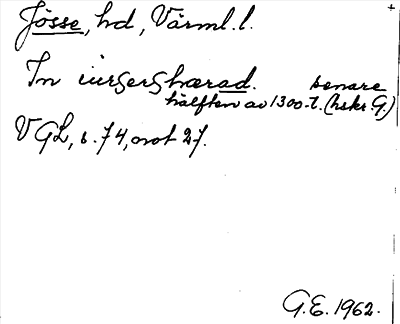 Jösse, hd, Värml. l.
In iursershærad. senare
hälften av 1300-t. (hskr G)
VGL, s. 74, not 27.
G.E. 1962.